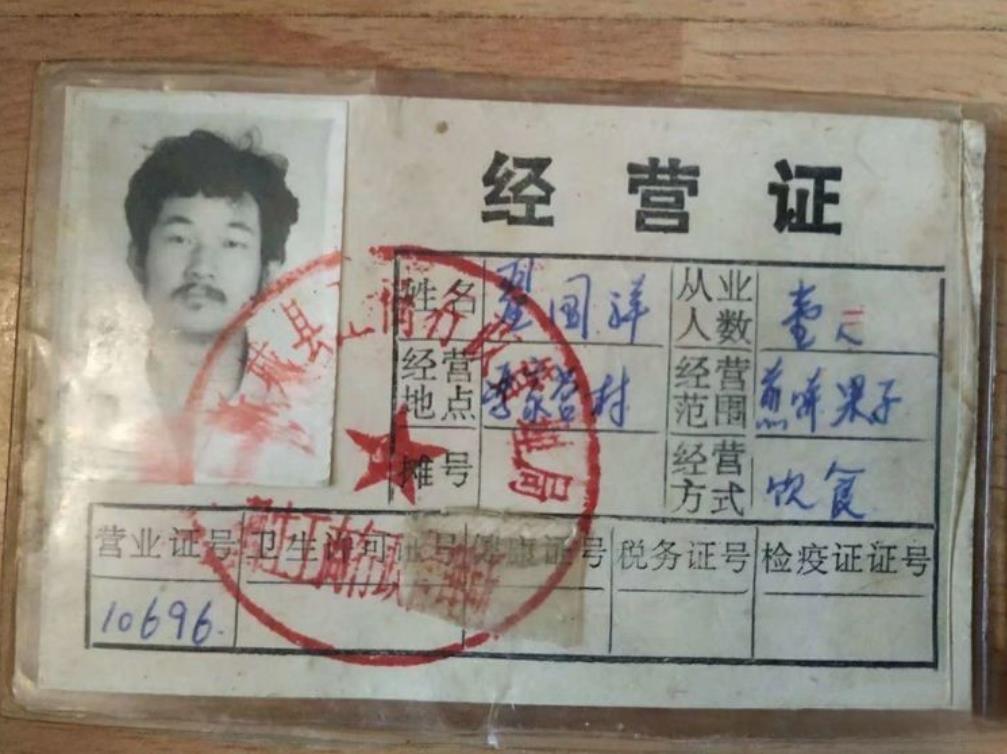 经营证
姓名 国祥 从业人数 壹人
经营地点 李家营村 经营范围 煎饼果子
摊号 经营方式 饮食
营业证号 卫生许可证号 健康证号 税务证号 检疫证证号
10696.
城县工商行政管理局